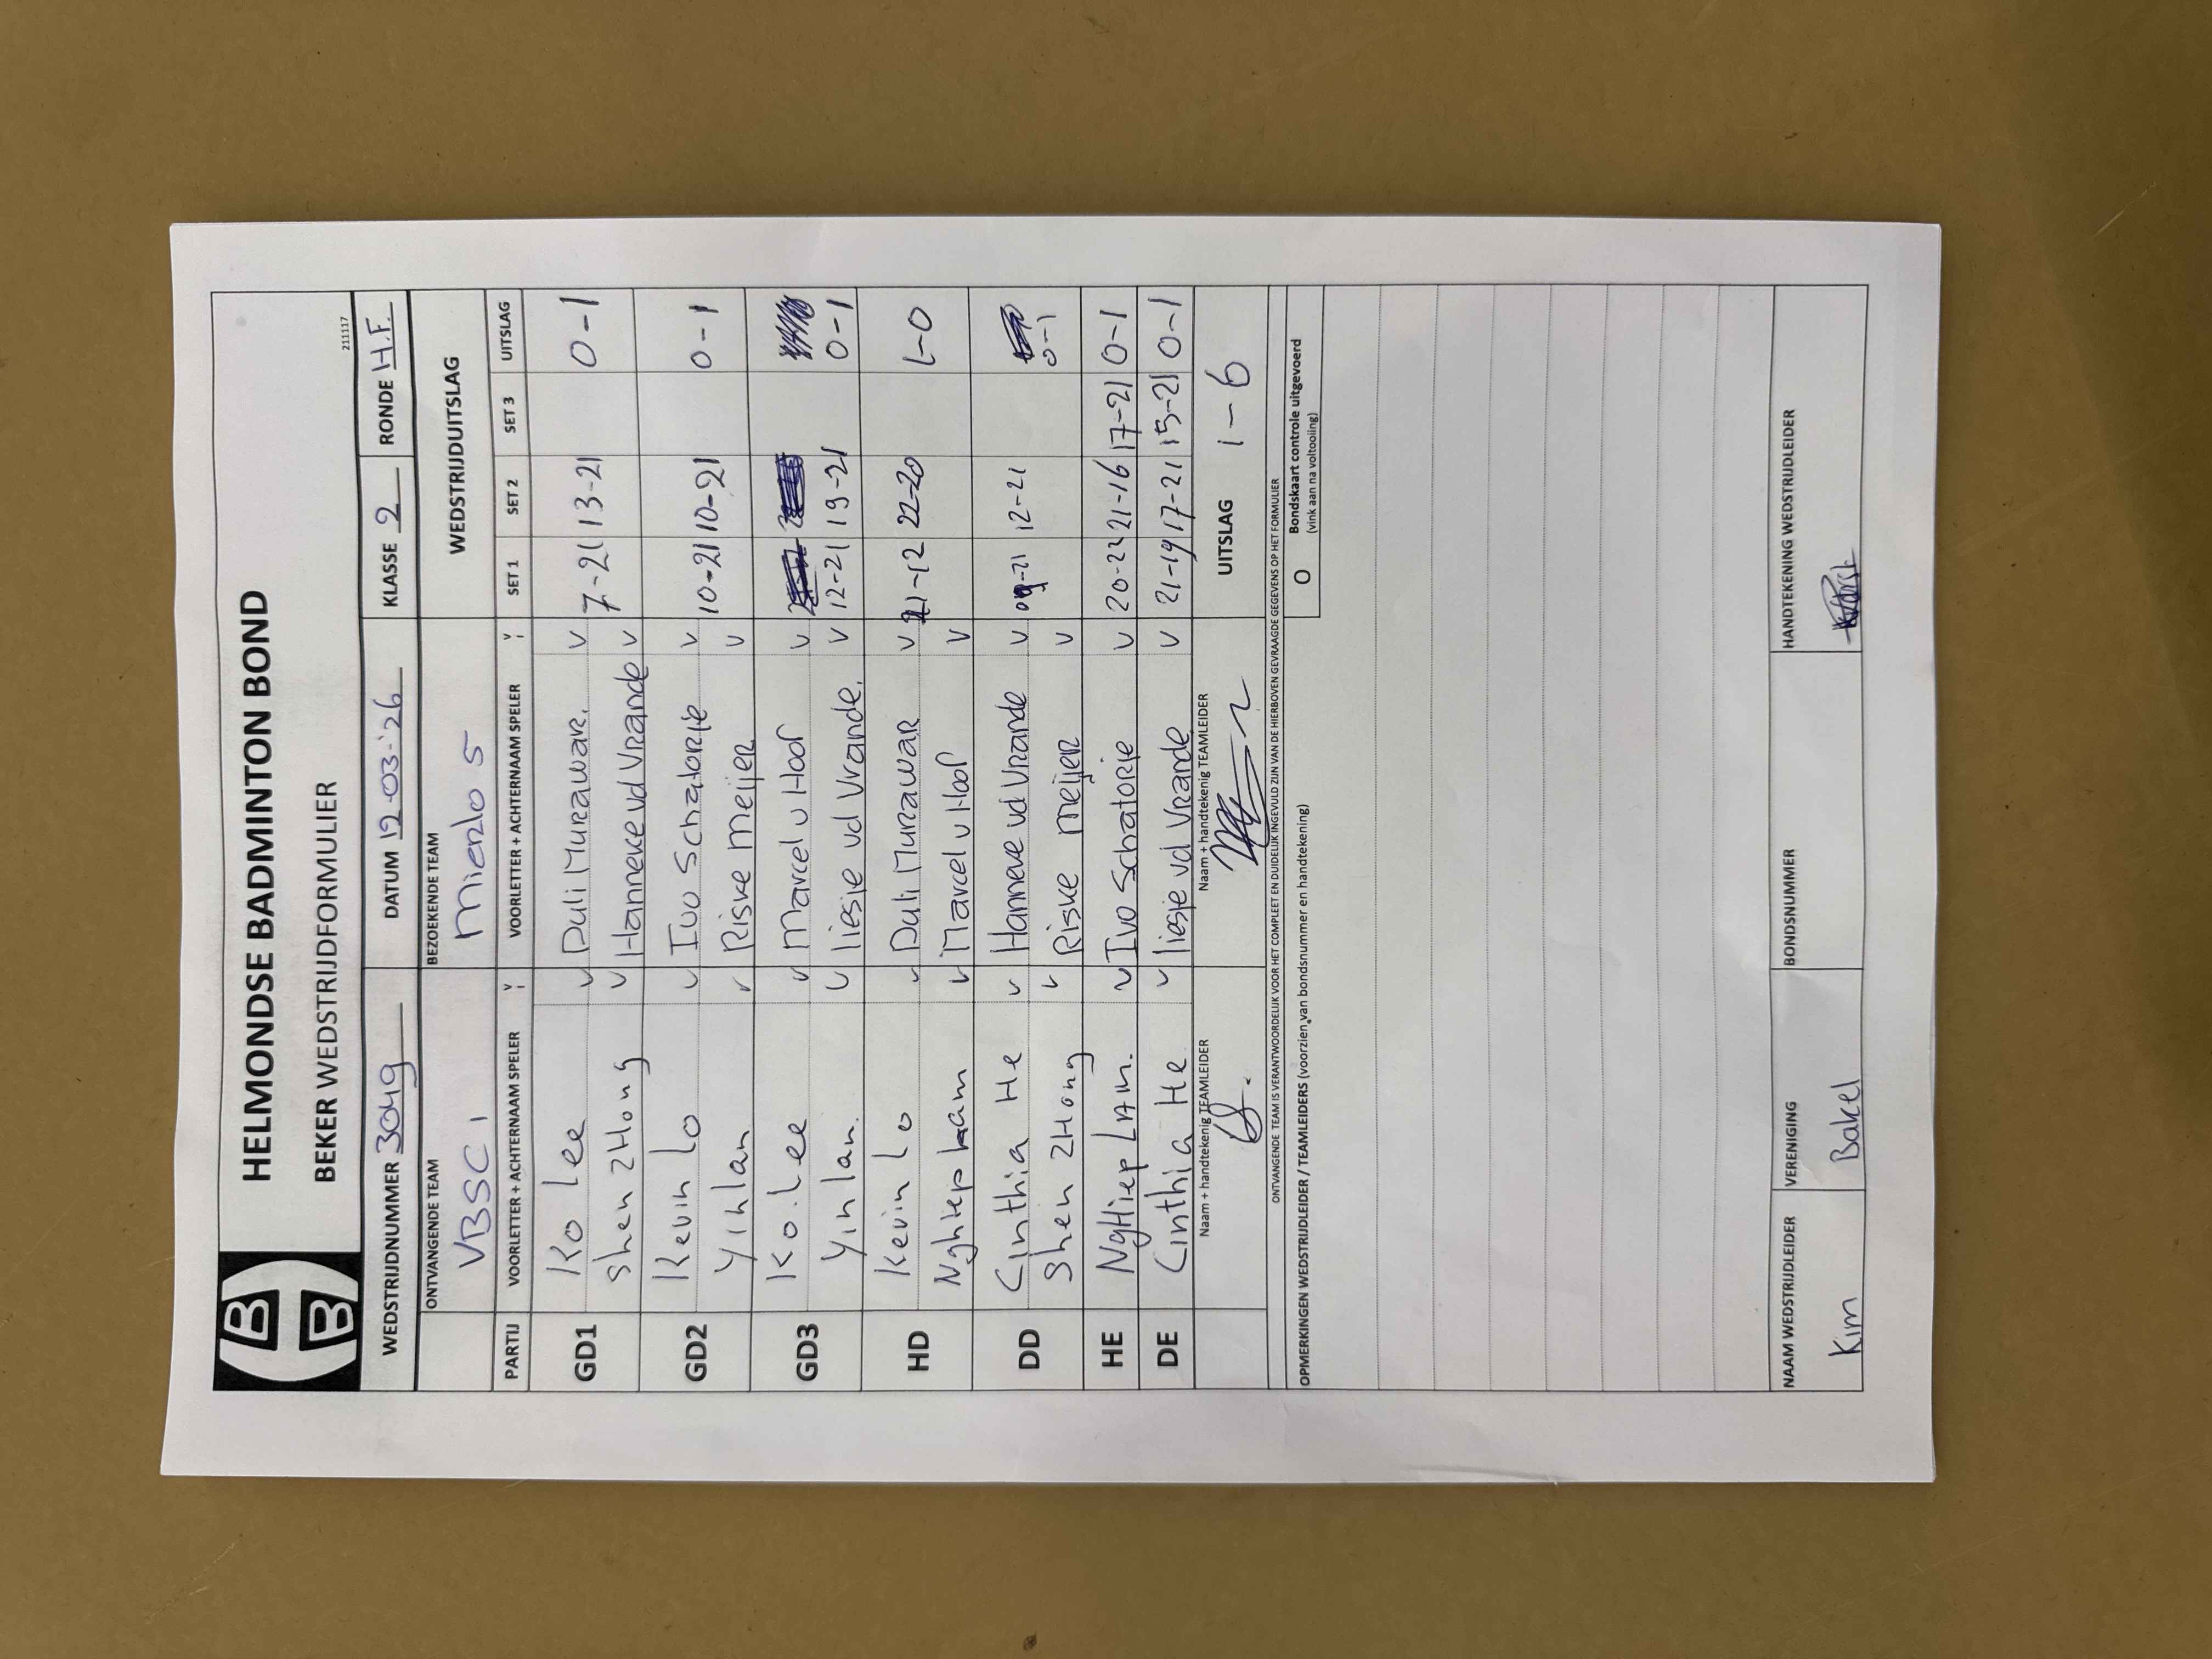 HELMONDSE BADMINTON BOND
BEKER WEDSTRIJDFORMULIER
211117
WEDSTRIJDNUMMER 3049 DATUM 12-03-'26 KLASSE 2 RONDE H.F.
ONTVANGENDE TEAM BEZOEKENDE TEAM WEDSTRIJDUITSLAG
VBSC 1 Mierlo 5
PARTIJ VOORLETTER + ACHTERNAAM SPELER V VOORLETTER + ACHTERNAAM SPELER V SET 1 SET 2 SET 3 UITSLAG
GD1 Ko Lee v Duli Murawar. v 7-21 13-21 0-1
Shen ZHong v Hanneke vd Vrande v
GD2 Kevin Lo v Ivo Schatorje v 10-21 10-21 0-1
Yihlan v Riske Meijer v
GD3 Ko. Lee v Marcel v Hoof v
Yinlan. v liesje vd Vrande. v 12-21 19-21 0-1
HD Kevin Lo v Duli Murawar v 21-12 22-20 1-0
Nghiep Lam v Marcel v Hoof v
DD Cinthia He v Hanneke vd Vrande v 09-21 12-21 0-1
Shen ZHong v Riske Meijer v
HE NgHiep LAM. v Ivo Schatorje v 20-22 21-16 17-21 0-1
DE Cinthia He v liesje vd Vrande v 21-19 17-21 15-21 0-1
Naam + handtekenig TEAMLEIDER Naam + handtekenig TEAMLEIDER UITSLAG 1-6
ONTVANGENDE TEAM IS VERANTWOORDELIJK VOOR HET COMPLEET EN DUIDELIJK INGEVULD ZIJN VAN DE HIERBOVEN GEVRAAGDE GEGEVENS OP HET FORMULIER
OPMERKINGEN WEDSTRIJDLEIDER / TEAMLEIDERS (voorzien van bondsnummer en handtekening) O Bondskaart controle uitgevoerd
(vink aan na voltooiing)
NAAM WEDSTRIJDLEIDER VERENIGING BONDSNUMMER HANDTEKENING WEDSTRIJDLEIDER
Kim Bakel